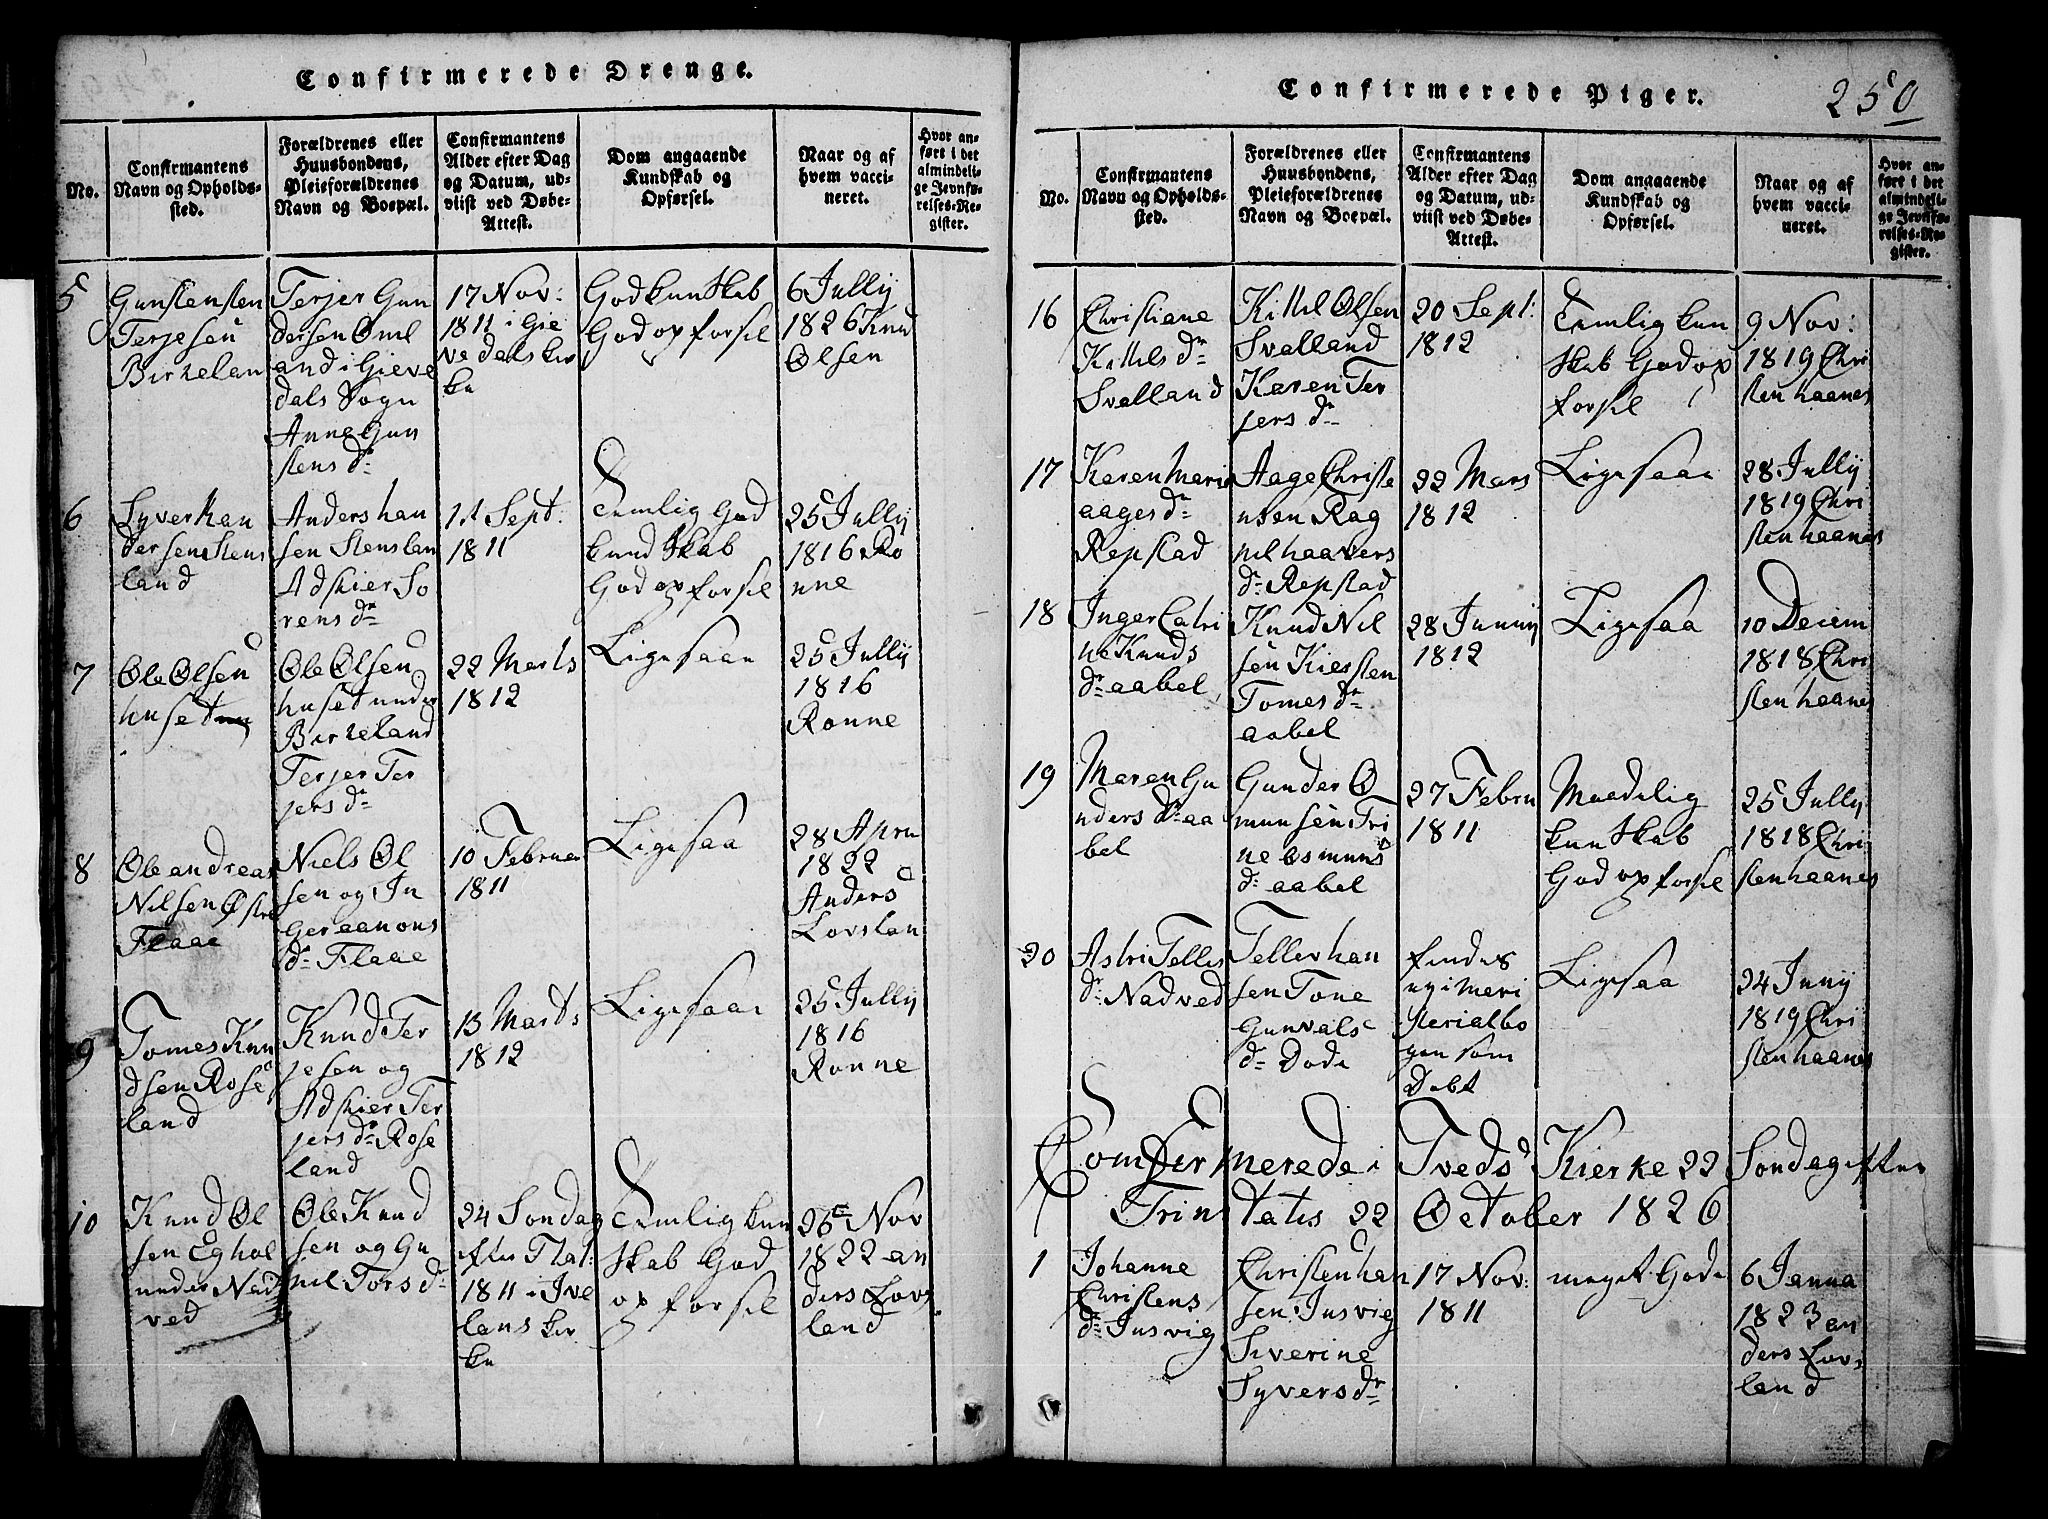 Confirmerede Drenge.
No.
Confirmantens
Navn og Opholds-
sted.
Forældrenes eller
Huusbondens,
Pleieforældrenes
Navn og Boepæl.
Confirmantens
Alder efter Dag
og Datum, ud-
viist ved Døbe-
Attest.
Dom angaaende
Kundskab og
Opførsel.
Naar og af
hvem vacci-
neret.
Hvor an-
ført i det
almindeli-
ge Jevnfø-
relses-Re-
gister.
5
Gunstensten
Terjesen
Birkelan
Terjer Gun
dersen Oml
and i Gieve
dals Sogn
Anne Gun
stens dr
17 Nov:
1811 i Gie
vedals kir
ke
God kunskab
God opforsel
6 Jully
1826 Knud
Olsen
6
Syver han
dersen Stens
land
Anders han
sen Stenslan
Adskier So
rens dr
1 Sept:
1811
Temlig God
kundskab
God opforsel
25 Jully
1816 Ro
nne
7
Ole Olsen
huset
Ole Olsen
huset under
Birkeland
Terjer Ter
jers dr
22 Marts
1812
Ligesaa
25 Jully
1816
Ronne
8
Ole andreas
Nilsen Østre
Flaae
Niels Ol
sen og In
ger aanons
dr Flaae
10 Februar
1811
Ligesaa
28 Apru
1822
Anders
Lovslan
9
Tomes Knu
dsen Rose
land
Knud Ter
jesen og
Adskier Ter
jers dr Rose
land
13 Marts
1812
Ligesaa
25 Jully
1816
Ronne
10
Knud Ol
sen Eghol
under Nad
ved
Ole Knud
sen og Gu
nil Tors dr
24 Sondag
efter
1811 i Ive
lans kir
ke
Temlig kun
skab God
opforsel
26 Nov
1822 an
ders Lovs
land
Confirmerede Piger.
250
No.
Confirmantens
Navn og Opholds-
sted.
Forældrenes eller
Huusbondens,
Pleieforældrenes
Navn og Boepæl.
Confirmantens
Alder efter Dag
og Datum, ud-
viist ved Døbe-
Attest.
Dom angaaende
Kundskab og
Opførsel.
Naar og af
hvem vacci-
neret.
Hvor an-
ført i det
almindeli-
ge Jevnfø-
relses-Re-
gister.
16
Christiane
Kittels dr
Svalland
Kittel Olsen
Svalland
Karen Ter
jers dr
20 Sept:
1812
Temlig kun
skab God op
forsel
9 Nov:
1819 Chri
sten haanes
17
Karen Marie
aages dr
Repstad
Aage Christe
nsen Rag
nil haavers
dr Repstad
22 Mars
1812
Ligesaa
28 Jully
1819 Chri
sten haanes
18
Inger Catri
ne Knuds
dr aabel
Knud Nil
sen Kiersten
Tomes dr
aabel
28 Junny
1812
Ligesaa
10 Deiem
1818 Chri
sten haanes
19
Maren Gu
nders dr aa
bel
Gunder O
munsen Tri
ne osmuns
dr aabel
27 Febru
1811
Maadelig
kunskab
God opforsel
25 Jully
1818 Chri
sten haanes
20
Astri Telles
dr Nadved
Tellev han
sen Tone
Gunvals
dr Dode
findes
ny i Meri
sterialbo
gen som
Dobt
Ligesaa
24 Juny
1819 Chri
sten haanes
Comfermerede i Tveds Kierke 22 Sondag efter
Trinitatis 22 October 1826
1
Johanne
Christens
dr Jusvig
Christen han
sen Jusvig
Siverine
Syvers dr
17 Nov:
1811
meget Gode
6 Janua
1823 an
ders Lovs
land